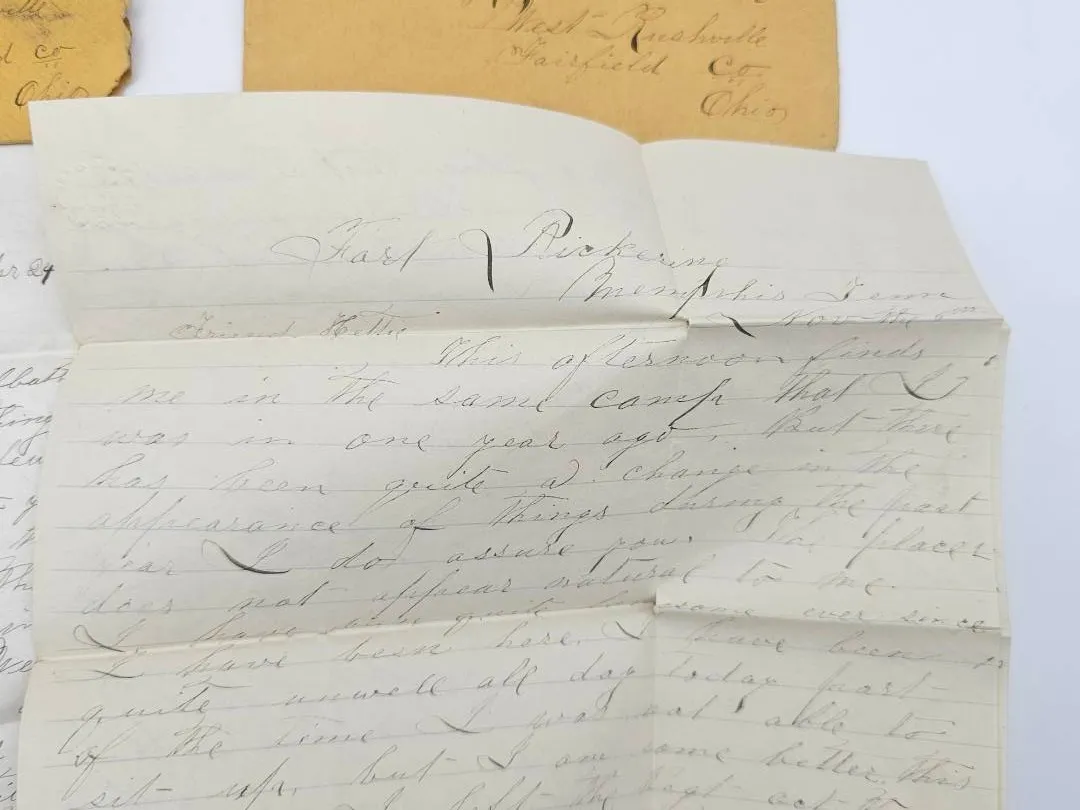 Co
Ohio
West Rushville
Fairfield Co
Ohio
24
Fort Pickering
Memphis Tenn
Nov the
Friend Hettie
This afternoon finds
me in the same camp that I
was in one year ago. But there
has been quite a change in the
appearance of things during the past
year I do assure you. places
does not appear natural to me
I have quite ever since
I have been here. I have been
quite unwell all day today part
of the time I was not able to
sit up, but I am some better this
I left the boat